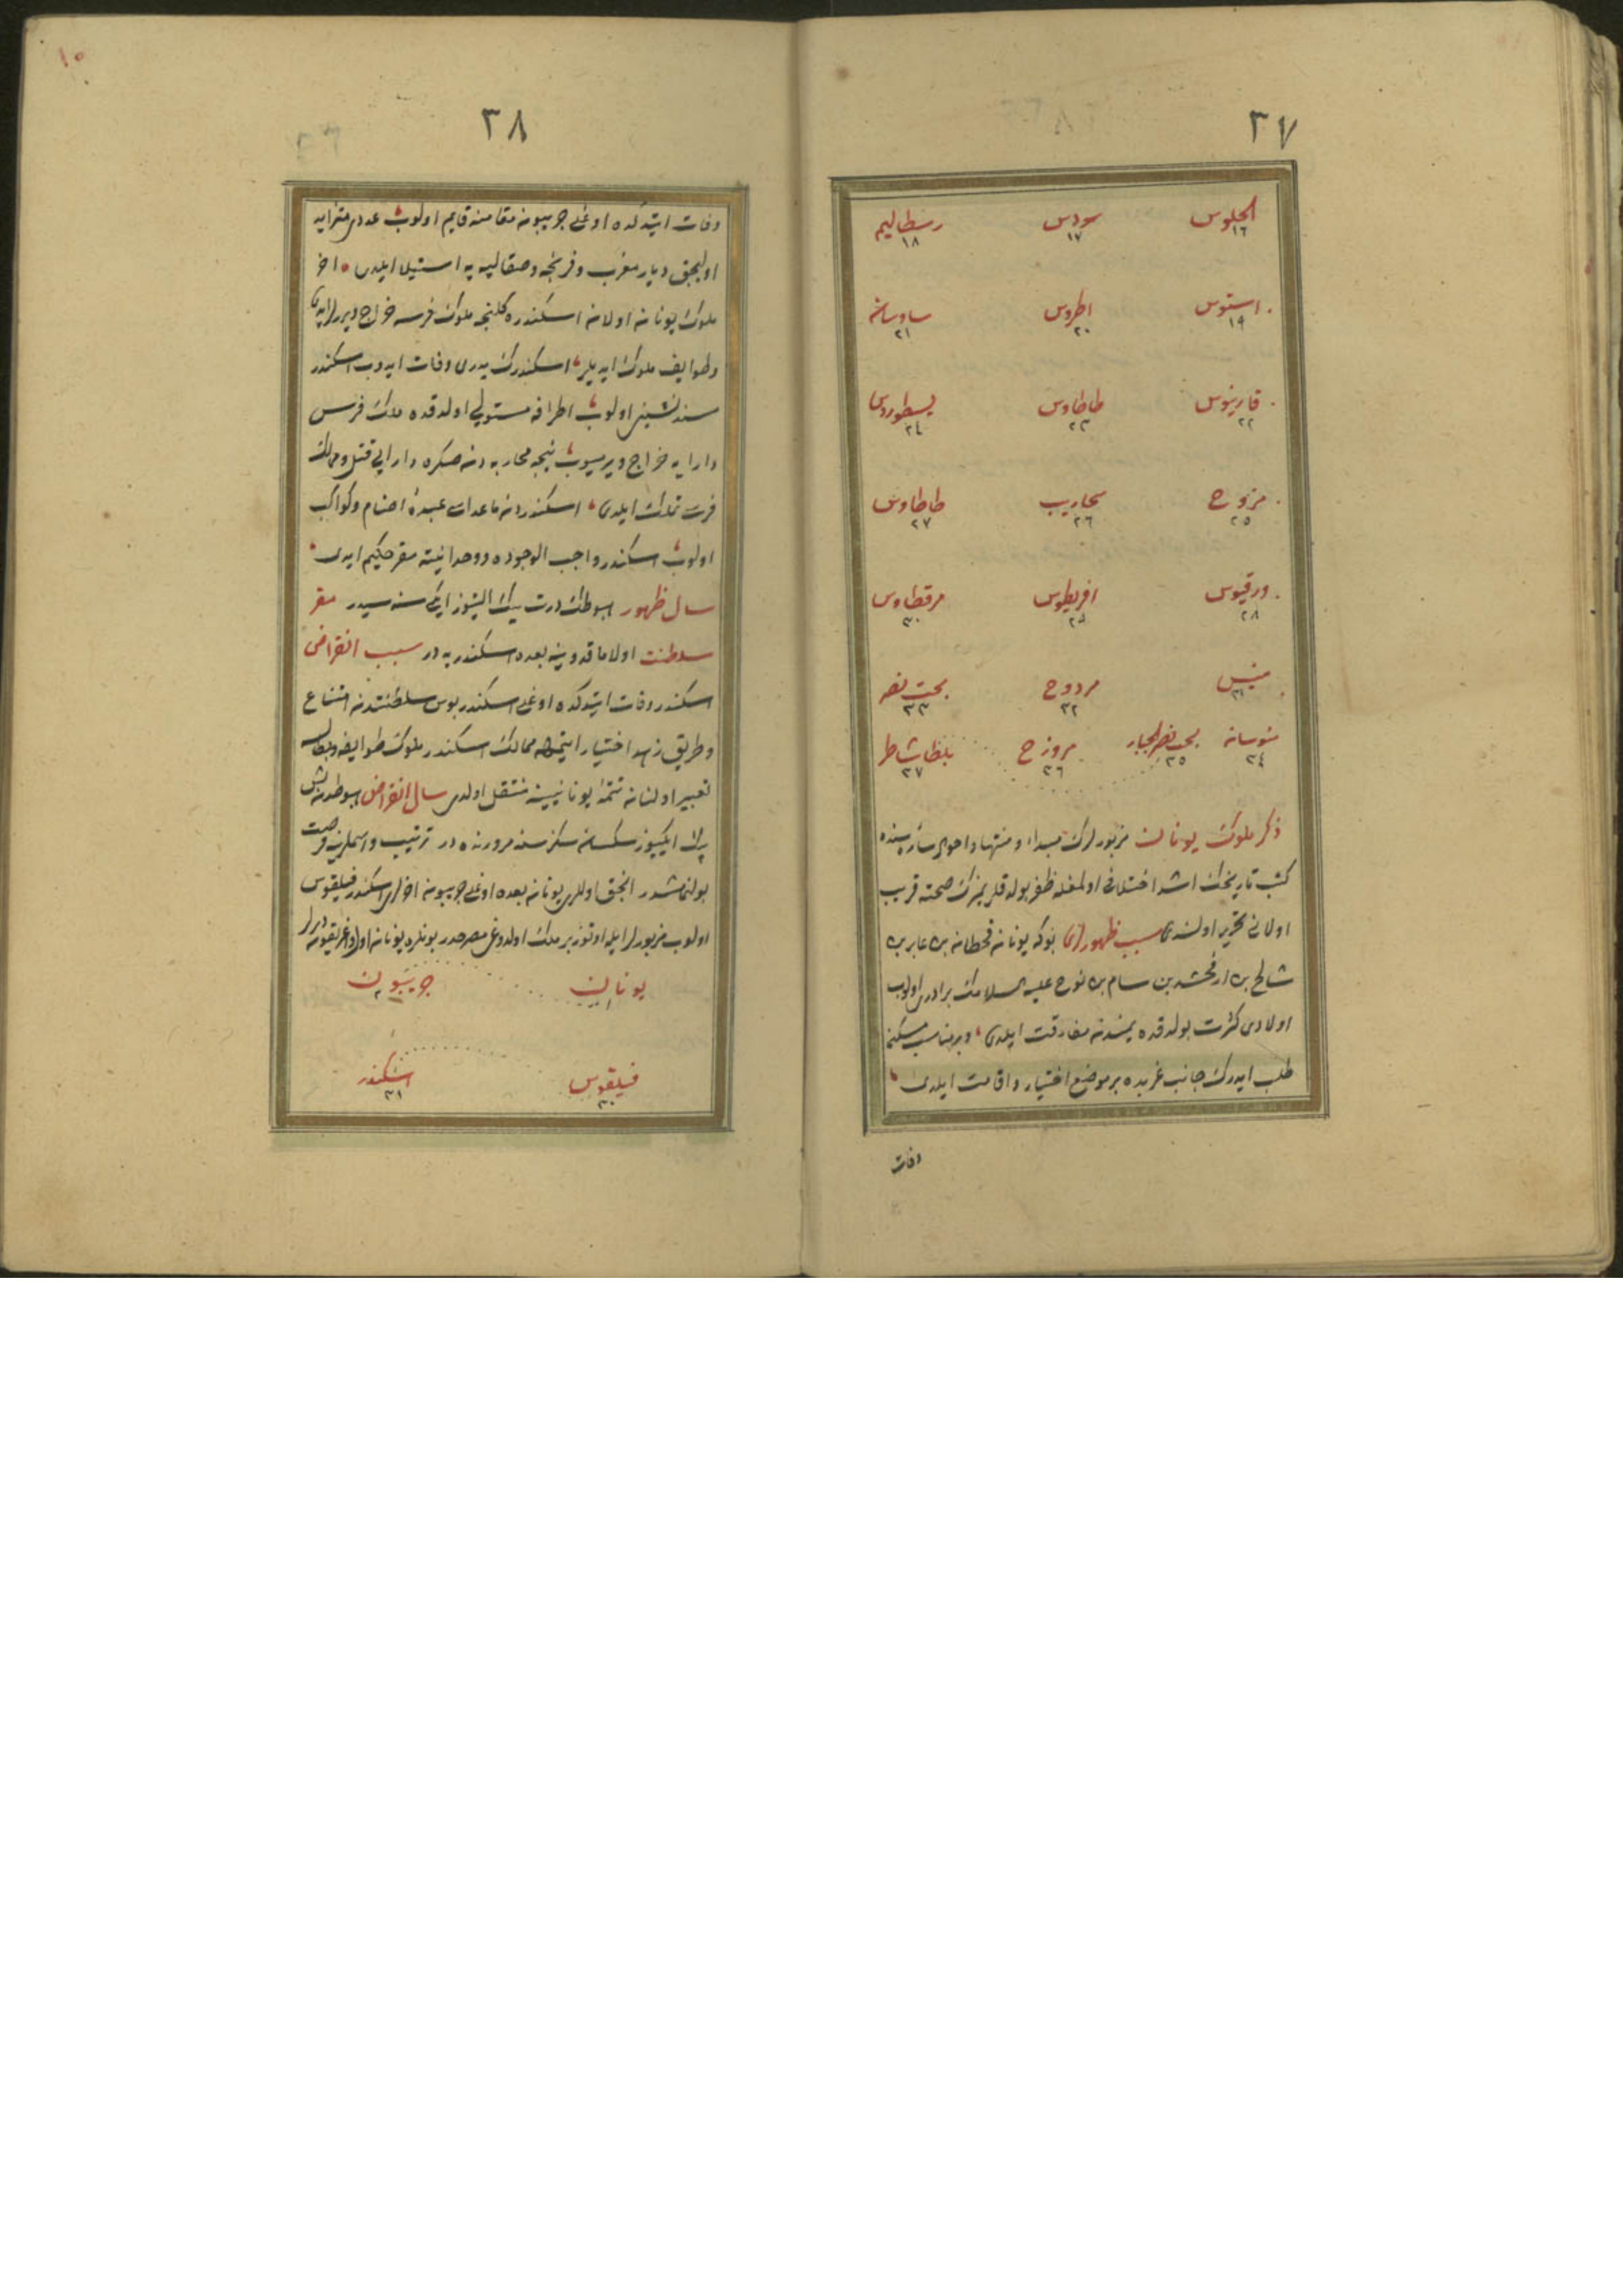 ٣٧
الجلوس ١٦ سودس ١٧ رسطاليم ١٨
استوس ١٩ اطروس ٢٠ ساوسانه ٢١
قارينوس ٢٢ طاطاوس ٢٣ ٢٤
مزوح ٢٥ سحاريب ٢٦ طاطاوس ٢٧
ورقيوس ٢٨ افريطوس ٢٩ مرقطاوس ٣٠
٣١ مردوح ٣٢ بحت نصر ٣٣
منوسانه ٣٤ بحت نصر الجبار ٣٥ مروزح ٣٦ بلطا شاطر ٣٧
ذكر ملوك يونان مزبورلرك مبداء و منتها و احوال سائره سنده
كتب تاريخك اشد اختلافى اولمغله ظفر بولدقلريمزك صحته قريب
اولانى تحرير اولندى سبب ظهورلرى بوكه يونان قحطان بن عابر بن
شالح بن ارفخشد بن سام بن نوح عليه السلامك برادرى اولوب
اولادى كثرت بولدقده يمندن مفارقت ايلدى و بر مناسب مسكن
طلب ايدرك جانب غربده بر موضع اختيار و اقامت ايلدى
وفات
١٥
٣٨
وفات ايتدكده اوغلى جريبون مقامنه قايم اولوب عددى متزايد
اوليجق ديار مغرب و فرنجه و صقالبه يه استيلا ايلدى اخر
ملوك يونان اولان اسكندره كلنجه ملوك فرسه خراج ويررلر ايدى
و طوايف ملوك ايديلر اسكندرك پدرى وفات ايدوب اسكندر
مسندنشين اولوب اطرافه مستولى اولدقده ملك فرس
دارايه خراج ويرميوب نيجه محاربه دن صكره دارايى قتل و ممالك
فرسه تملك ايلدى اسكندردن ماعداسى عبدۀ اصنام و كواكب
اولوب اسكندر واجب الوجوده و وحدانيته مقر حكيم ايدى
سال ظهور هبوطك درت بيك التيوز ايكى سنه سيدر مقر
سلطنت اولا ماقدونيه بعده اسكندريه در سبب انقراض
اسكندر وفات ايتدكده اوغلى اسكندريوس سلطنتدن امتناع
و طريق زهد اختيار ايتمكله ممالك اسكندر ملوك طوايفه و بطالسه
تعبير اولنان تتمۀ يونانيينه منتقل اولدى سال انقراض هبوطدن بش
بيك ايكيوز سكسان سكز سنه مرورنده در ترتيب و اسملرينه فرصت
بولنمامشدر انجق اوللرى يونان بعده اوغلى جريبون اخرلرى اسكندر فيلقوس
اولوب مزبورلر ايله اوتوز بر ملك اولدوغى مصرحدر بونلره يونان اول و اغريقيون ديرلر
يونان ١ جريبون ٢
فيلقوس ٣٠ اسكندر ٣١